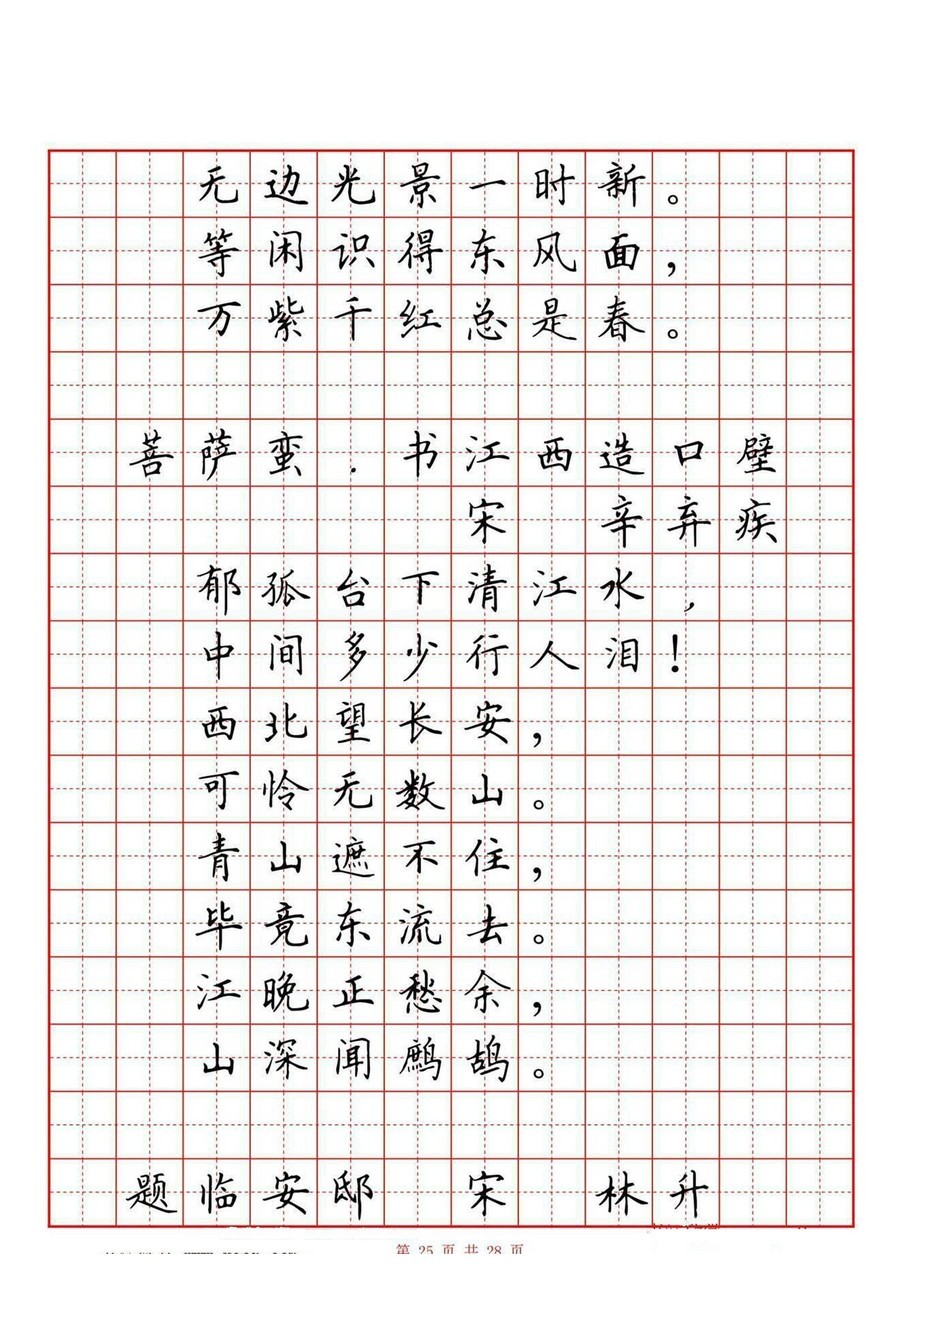 无边光景一时新。
等闲识得东风面，
万紫千红总是春。
菩萨蛮．书江西造口壁
宋 辛弃疾
郁孤台下清江水，
中间多少行人泪！
西北望长安，
可怜无数山。
青山遮不住，
毕竟东流去。
江晚正愁余，
山深闻鹧鸪。
题临安邸 宋 林升
第 25 页 共 28 页